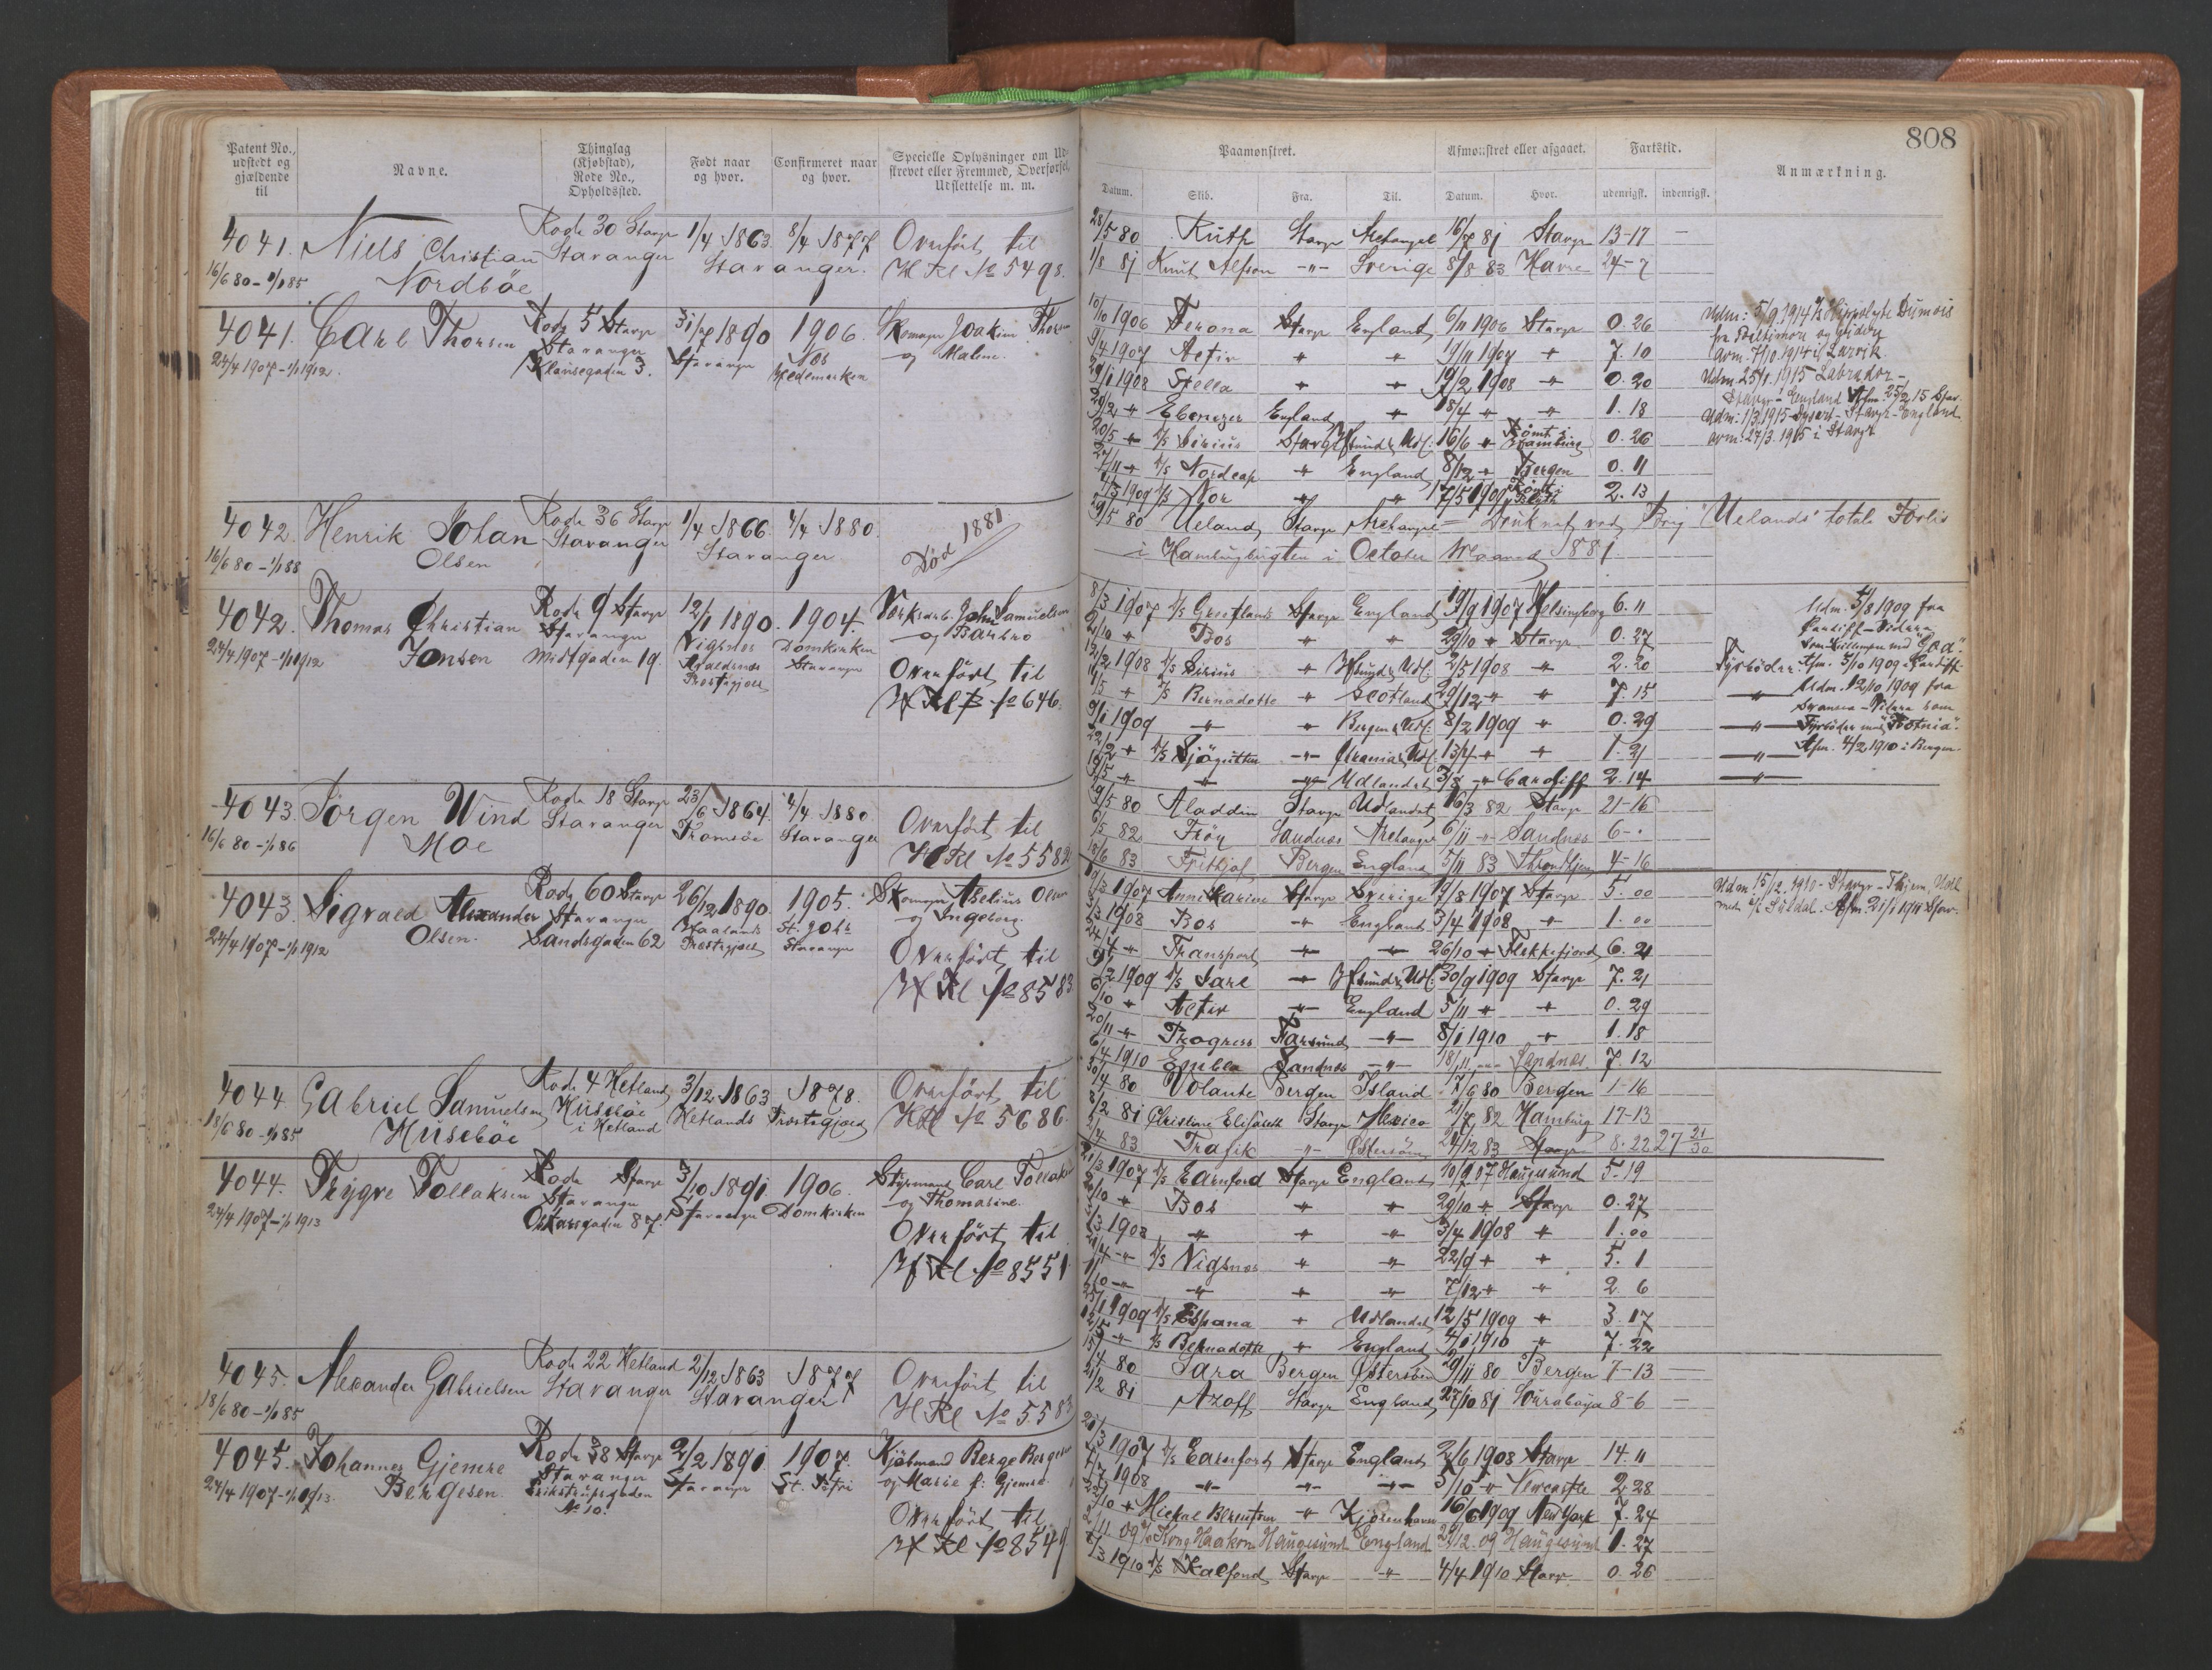 808
Patent No., udstedt og gjældende til
Navne.
Thinglag (Kjøbstad), Rode No., Opholdssted.
Født naar og hvor.
Confirmeret naar og hvor.
Specielle Oplysninger om Udstrevet eller Fremmed, Overførsel, Udslettelse m. m.
Paamønstret.
Afmønstret eller afgaaet.
Fartstid.
Anmærkning.
Datum.
Skib.
Fra.
Til.
Datum.
Hvor.
udenrigsk.
indenrigsk.
4041. Niels Christian Rode 30 Stavgr 1/4 1863. 8/4 1877 Overført til
16/6 80 - 1/1 85 Nordbøe Stavanger Stavanger. H Rl No 5498.
28/5 80 Ruth Stavgr Archangel 16/7 81 Stavgr 13-17 —
1/8 81 Knut Alfson -"- Sverige 8/8 83 Havre 24-7
4041. Carl Thorsen Rode 5 Stavgr 31/7 1890 1906. Skomager Joakim Thorsen
24/4 1907 - 1/1 1912. Stavanger Stavanger Nes og Malene.
3. Hedemarken
10/10 1906 Verona Stavgr England 6/11 1906 Stavgr 0.26
9/4 1907 Activ " " 19/11 1907 " 7.10
29/1 1908 Stella " " 19/2 1908 " 0.20
29/2 " Ebenezer England " 18/4 " " 1.18
20/5 " D/S Sirius Stavgr Udl. 16/6 " Rømt i Hamburg 0.26
27/11 " D/S Nordcap " England 8/12 " Bergen 0.11
1/3 1909 D/S Nor " " 17/5 1909 Rømt i 2.13
Udm: 5/9 1914 Hippolyte Dumois
fra Baltimore og
avm. 7/10 1914 i Larvik
Udm. 25/1 1915 Labrador -
Stavgr - England Afm. 25/2 15 Stav.
Udm: 1/3 1915 - Stavgr - England
avm: 27/3 1915 i Stavgr
4042. Henrik Johan Rode 36 Stavgr 1/4 1866. 4/4 1880.
16/6 80 - 1/1 88 Olsen Stavanger Stavanger Død 1881.
29/5 80 Ueland Stavgr Archangel = Druknet ved Brig "Uelands" totale Forlis
i October Maaned 1881
4042. Thomas Christian Rode 9 Stavgr 12/1 1890. 1904. John Samuelsen
24/4 1907 - 1/1 1912 Jonsen Stavanger Vigsnes Domkirken og Barbro
Midtgaden 19. Avaldsnes Stavanger Overført til
Prestegjeld H Rl B No 646.
8/3 1907 D/S Stavgr England 19/9 1907 Helsingborg 6.11
2/10 " Bos " " 29/10 " Stavgr 0.27
12/2 1908 D/S Sirius " Udl. 2/5 1908 " 2.20
D/S Bernadotte " Scotland 29/12 " " 7.15
9/1 1909 " " Bergen & Udl. 8/2 1909 " 0.29
22/2 " D/S Sjøgutten -"- Udl. 13/4 " " 1.21
" " -"- Udlandet " Cardiff 2.14
Udm. 5/8 1909 fra
Cardiff - Videre
Fyrbøder. Afm. 3/10 1909 i Cardiff
Udm. 12/10 1909 fra
Swansea - Videre som
Fyrbøder med "Botnia".
Afm. 4/2 1910 i Bergen.
4043. Jørgen Wind Rode 18 Stavgr 23/6 1864. 4/4 1880. Overført til
16/6 80 - 1/1 86 Moe Stavanger Tromsøe Stavanger H Rl No 5582
29/5 80 Aladdin Stavgr Udlandet 16/3 82 Stavgr 21-16
6/5 82 Frøy Sandnes Archangel 6/11 -"- Sandnes 6-.
18/6 83 Frithjof Bergen England 5/11 83 Throndhjem 4-16
4043. Sigvald Alexander Rode 60 Stavgr 26/12 1890. 1905. Skomager Aselius Olsen
24/4 1907 - 1/1 1912 Olsen. Stavanger St. Johs og Ingeborg.
Sandsgaden 62 Prestegjeld Stavanger Overført til
H Rl No 8583
1907 Anna Karine Stavgr Sverige 19/8 1907 Stavgr 5.00
1908 Bos -"- England 3/4 1908 " 1.00
Transport -"- -"- 26/10 " Flekkefjord 6.21
1909 D/S Jarl -"- Udl. 30/9 1909 Stavgr 7.21
6/10 " Activ -"- England 5/11 " " 0.29
20/11 " Progress Farsund -"- 8/1 1910 " 1.18
6/4 1910 Embla Sandnes -"- 18/11 -"- Sandnes. 7.12
Udm 15/2 1910 - Stavgr - Thjem, Udl
med D/S Suldal. Afm. 21/1 1911 Stav.
4044. Gabriel Samuelsen Rode 4 Hetland 3/12 1863 1878. Overført til
18/6 80 - 1/1 85 Husebøe Husebøe i Hetland Hetlands Prestegjeld H Rl No 5686.
30/4 80 Volante Bergen Island 17/6 80 Bergen 1-16
8/2 81 Christiane Elisabeth Stavgr Mexico 21/7 82 Hamburg 17-13
2/4 83 Trafik -"- Østersøen 24/12 83 Stavgr 8-22 27 21/30
4044. Trygve Tollaksen Rode Stavgr 3/10 1891 1906. Styrmand Carl Tollaksen
24/4 1907 - 1/1 1913 Stavanger Stavanger Domkirken og Thomasine.
87. Overført til
H Rl No 8551
21/3 1907 D/S Earnford Stavgr England 10/9 07 Haugesund 5.19
2/10 " Bos " " 29/10 " Stavgr 0.27
3/3 1908 " " " 3/4 1908 " 1.00
D/S Vigsnes " " 22/9 " " 5.1
" " " 7/12 " " 2 6
1909 D/S España " Udlandet 12/5 1909 " 3.17
D/S Bernadotte " England 4/1 1910 " 7.22
4045. Alexander Gabrielsen Rode 22 Hetland 2/12 1863 1877 Overført til
18/6 80 - 1/1 85 Stavanger Stavanger H Rl No 5583
15/4 80 Sara Bergen Østersøen 29/11 80 Bergen 7-13 —
21/2 81 Azoff Stavgr England 27/10 81 Sourabaya 8-6 —
4045. Johannes Gjemre Rode 38 Stavgr 2/2 1891. 1907. Kjøbmand Berge Bergesen
24/4 1907 - 1/1 1913. Bergesen. Stavanger Stavanger St. Petri og Marie f: Gjemre
Erikstrupsgaden No 10. Overført til
H Rl No 8549
21/3 1907 D/S Earnford Stavgr England 2/6 1908 Stavgr 14.11
1908 -"- -"- -"- 5/10 " Newcastle 2 28
22/10 " Michal Berentsen " Kjøbenhavn 16/6 1909 New York 7.24
2/11. 09 D/S Kong Haakon Haugesund England 29/12. 09 Haugesund 1.27
1910 D/S Kalfond Stavgr -"- 4/4 1910 Stavgr 0.26